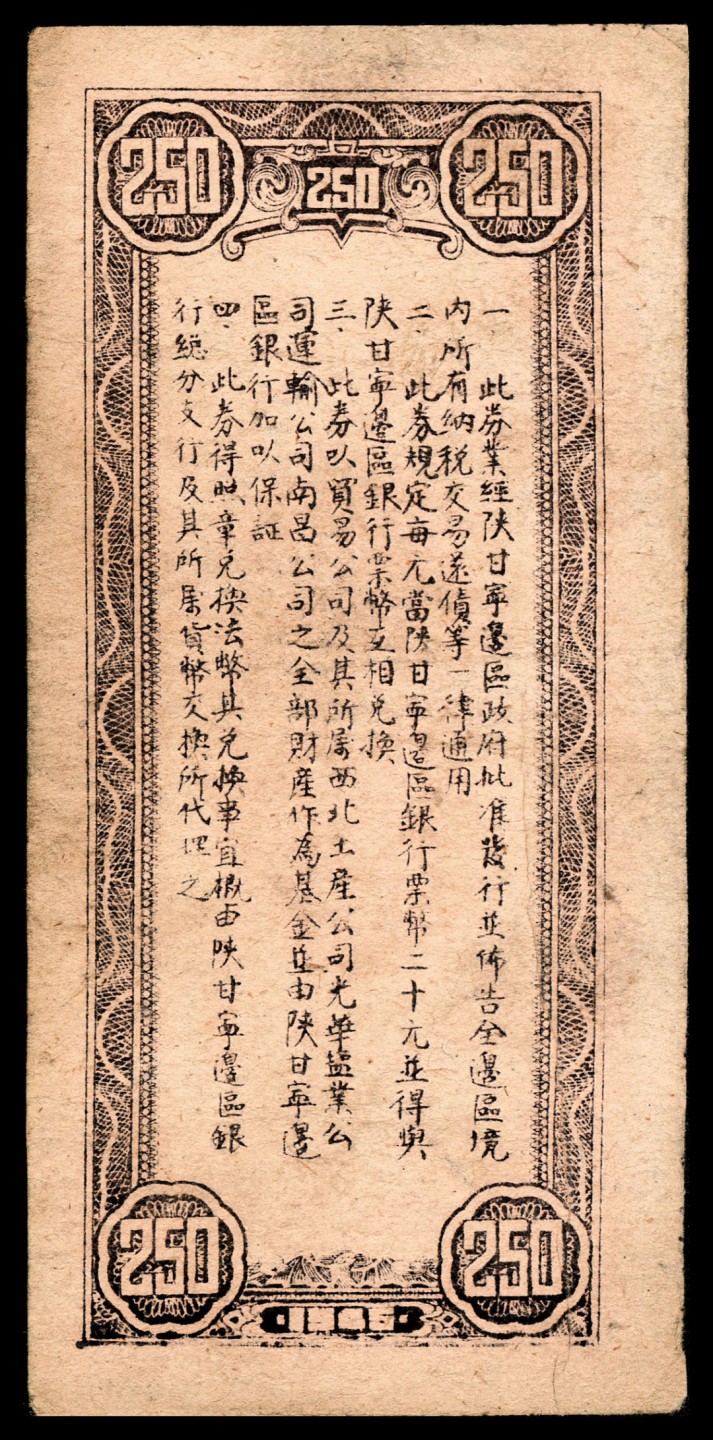 250 250 250
一. 此券業經陕甘寧邊區政府批准發行並佈告全邊區境
内所有納税交易还債等一律通用
二. 此券規定每元當陕甘寧邊區銀行票幣二十元並得與
陕甘寧邊區銀行票幣互相兑换
三. 此券以貿易公司及其所属西北土産公司光華盐業公
司運輸公司南昌公司之全部財産作為基金並由陕甘寧邊
區銀行加以保証
四. 此券得照章兑换法幣其兑换事宜概由陕甘寧邊區銀
行総分支行及其所属貨幣交换所代理之
250 250